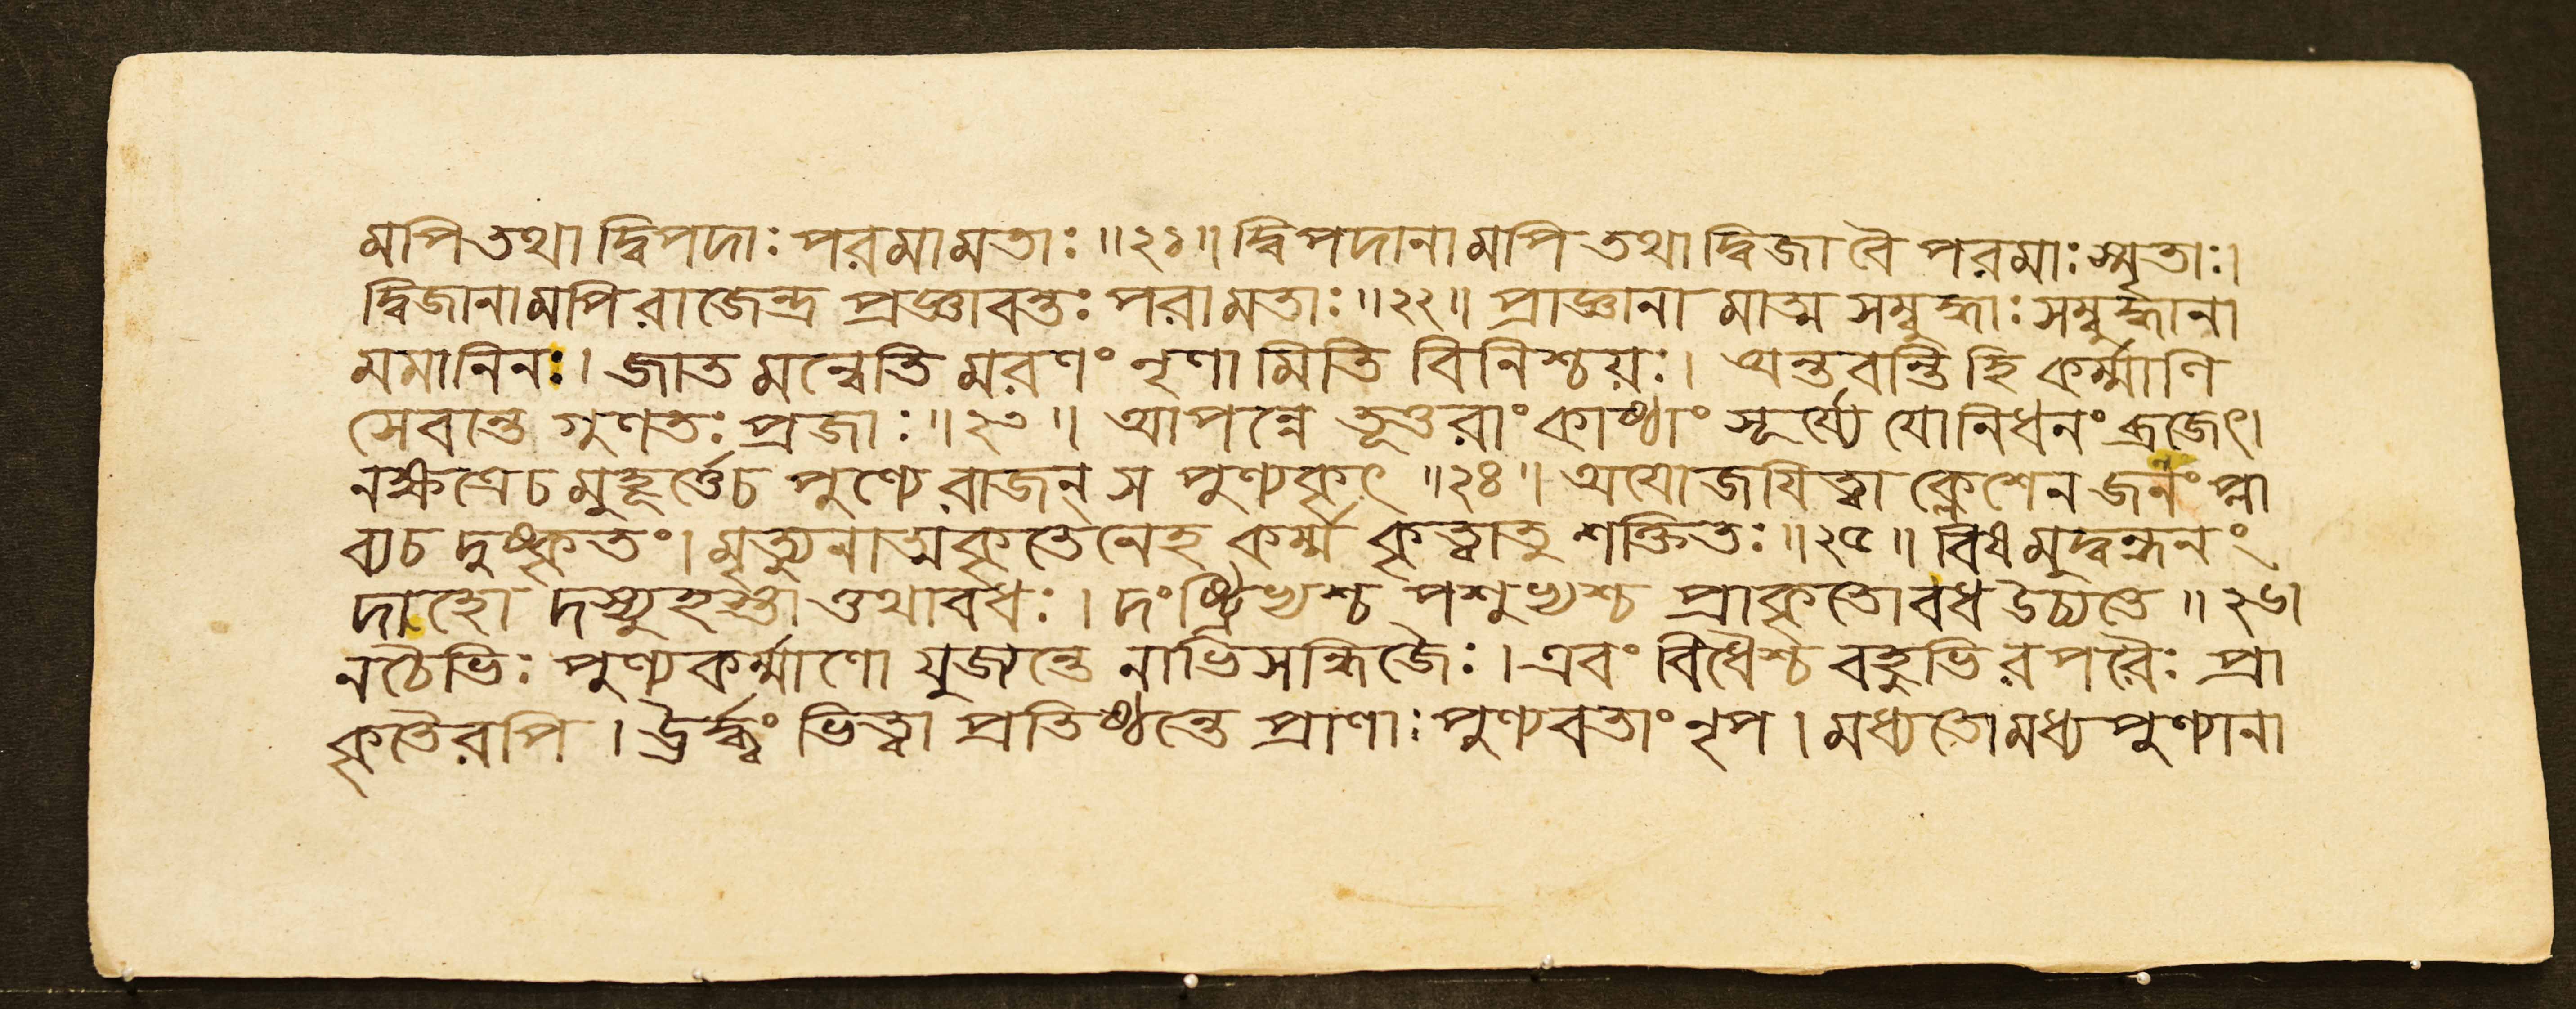 মপি তথা দ্বিপদাঃ পরমামতাঃ ॥২১॥ দ্বিপদানামপি তথা দ্বিজা বৈ পরমাঃ স্মৃতাঃ।
দ্বিজানামপি রাজেন্দ্র প্রজ্ঞাবন্তঃ পরামতাঃ ॥২২॥ প্রাজ্ঞানা মাত্ম সম্বুদ্ধাঃ সম্বুদ্ধানা
মমানিনঃ। জাত মন্বেতি মরণং নৃণা মিতি বিনিশ্চয়ঃ। অন্তবন্তি হি কর্ম্মাণি
সেবন্তে গুণতঃ প্রজাঃ ॥২৩॥ আপন্নে তূত্তরাং কাষ্ঠাং সূর্য্যে যো নিধনং ব্রজেৎ।
নক্ষত্রে চ মুহূর্ত্তে চ পুণ্যে রাজন্ স পুণ্যকৃৎ ॥২৪॥ অযোজযিত্বা ক্লেশেন জনং প্লা
ব্য চ দুষ্কৃতং। মৃত্যুনাত্মকৃতেনেহ কর্ম্ম কৃত্বা তু শক্তিতঃ ॥২৫॥ বিষমুদ্বন্ধনং
দাহো দস্যুহস্তা ত্তথা বধঃ। দংষ্ট্রিভ্যশ্চ পশুভ্যশ্চ প্রাকৃতো বধ উচ্যতে ॥২৬।
ন চৈভিঃ পুণ্যকর্ম্মাণো যুজ্যন্তে নাভিসন্ধিজৈঃ। এবং বিধৈশ্চ বহুভি রপরৈঃ প্রা
কৃতৈরপি । ঊর্দ্ধ্বং ভিত্বা প্রতিষ্ঠন্তে প্রাণাঃ পুণ্যবতাং নৃপ । মধ্যতো মধ্য পুণ্যানা